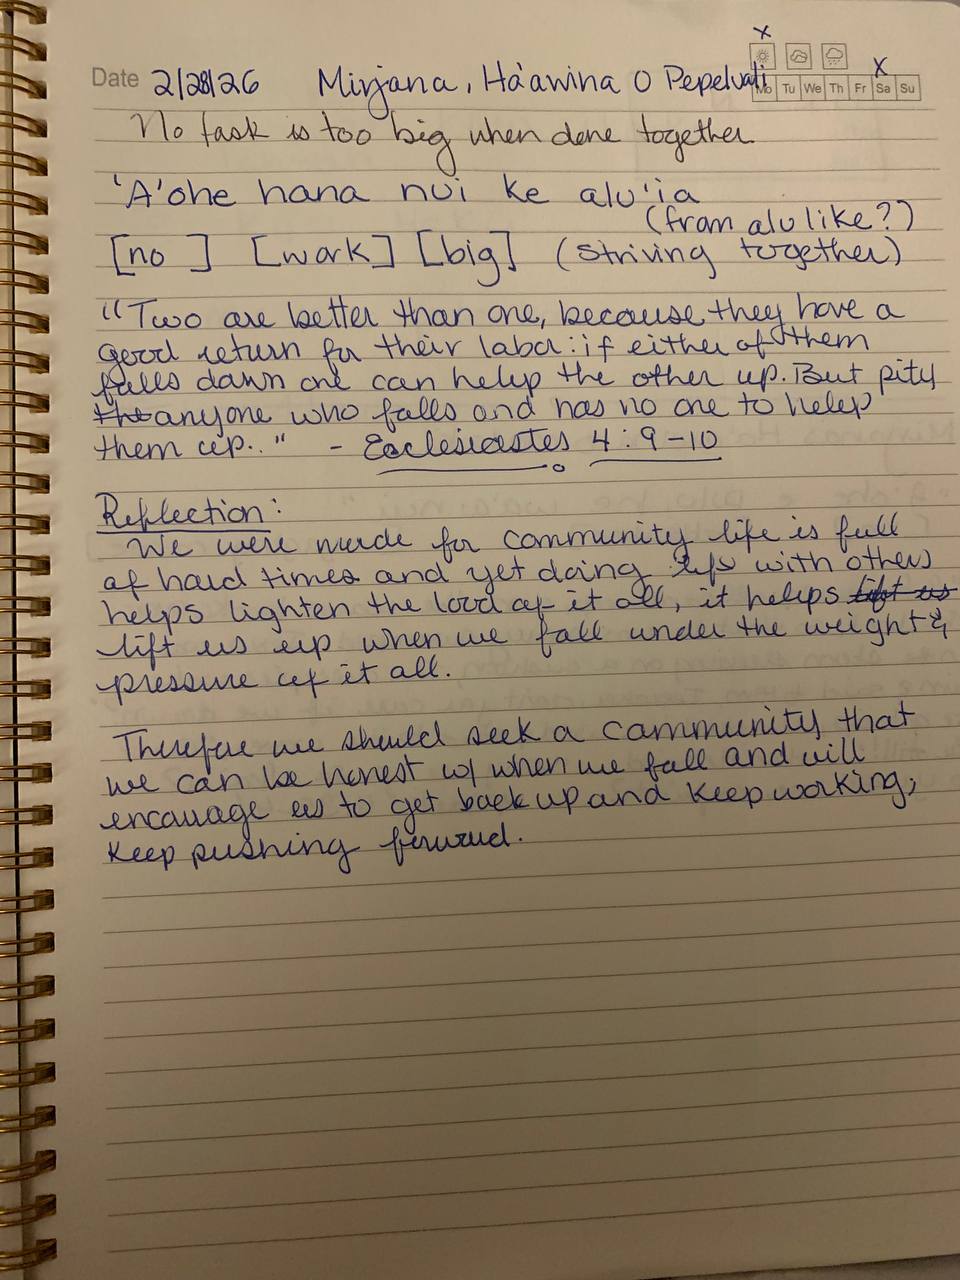 x
Date 2/28/26 Mirjana, Ha'awina O Pepeluali
x
Mo Tu We Th Fr Sa Su
No task is too big when done together
'A'ohe hana nui ke alu'ia
(from alu like?)
[no ] [work] [big] (striving together)
"Two are better than one, because they have a
good return for their labor: if either of them
falls down one can help the other up. But pity
the anyone who falls and has no one to help
them up.." - Ecclesiastes 4:9-10
Reflection:
We were made for community life is full
of hard times and yet doing life with others
helps lighten the load of it all, it helps lift us
lift us up when we fall under the weight &
pressure of it all.
Therefore we should seek a community that
we can be honest w/ when we fall and will
encourage us to get back up and keep working,
keep pushing forward.